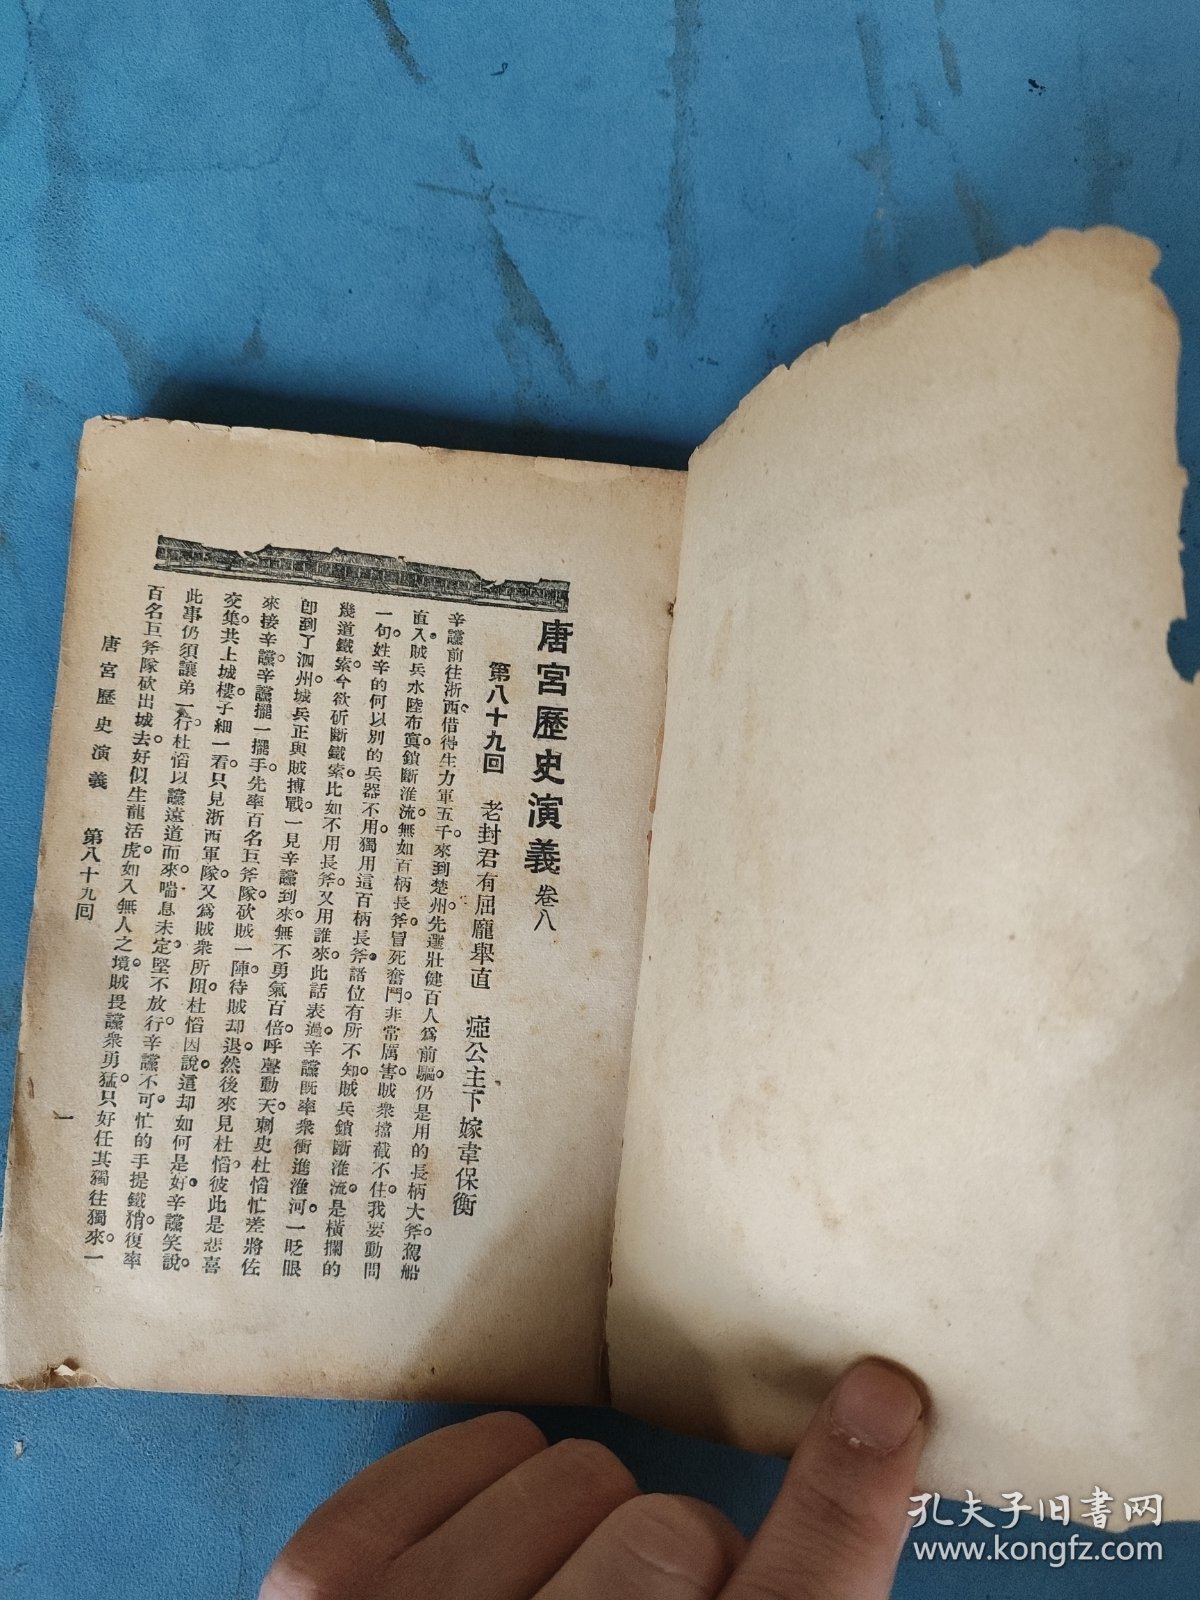 唐宮歷史演義 卷八
第八十九回 老封君有屈龐舉直 瘂公主下嫁韋保衡
辛讜前往浙西借得生力軍五千。來到楚州。先選壯健百人爲前驅。仍是用的長柄大斧。駕船
直入賊兵水陸布寘。鎖斷淮流。無如百柄長斧。冒死奮鬥。非常厲害。賊衆擋截不住。我要動問
一句。姓辛的何以別的兵器不用。獨用這百柄長斧。諸位有所不知。賊兵鎖斷淮流。是橫攔的
幾道鐵索。今欲斫斷鐵索。比如不用長斧。又用誰來。此話表過。辛讜既率衆衝進淮河。一眨眼
卽到了泗州。城兵正與賊搏戰。一見辛讜到來。無不勇氣百倍。呼聲動天。刺史杜慆忙差將佐
來接辛讜。辛讜擺一擺手。先率百名巨斧隊。砍賊一陣。待賊却退。然後來見杜慆。彼此是悲喜
交集。共上城樓。子細一看。只見浙西軍隊。又爲賊衆所阻。杜慆因說。這却如何是好。辛讜笑說。
此事仍須讓弟一行。杜慆以讜遠道而來。喘息未定。堅不放行。辛讜不可。忙的手提鐵矟。復率
百名巨斧隊。砍出城去。好似生龍活虎。如入無人之境。賊畏讜衆勇猛。只好任其獨往獨來。一
唐宮歷史演義 第八十九回 一
孔夫子旧书网
www.kongfz.com